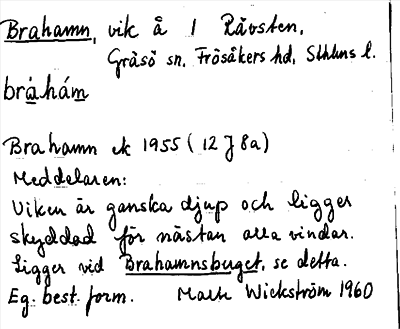 Brahamn, vik å 1 Rävsten,
Gräsö sn, Frösåkers hd, Sthlms l.
bråhám
Brahamn ek 1955 (12 J 8a)
Meddelaren:
Viken är ganska djup och ligger
skyddad för nästan alla vindar.
Ligger vid Brahamnsbuget, se detta.
Eg. best. form. Mats Wickström 1960